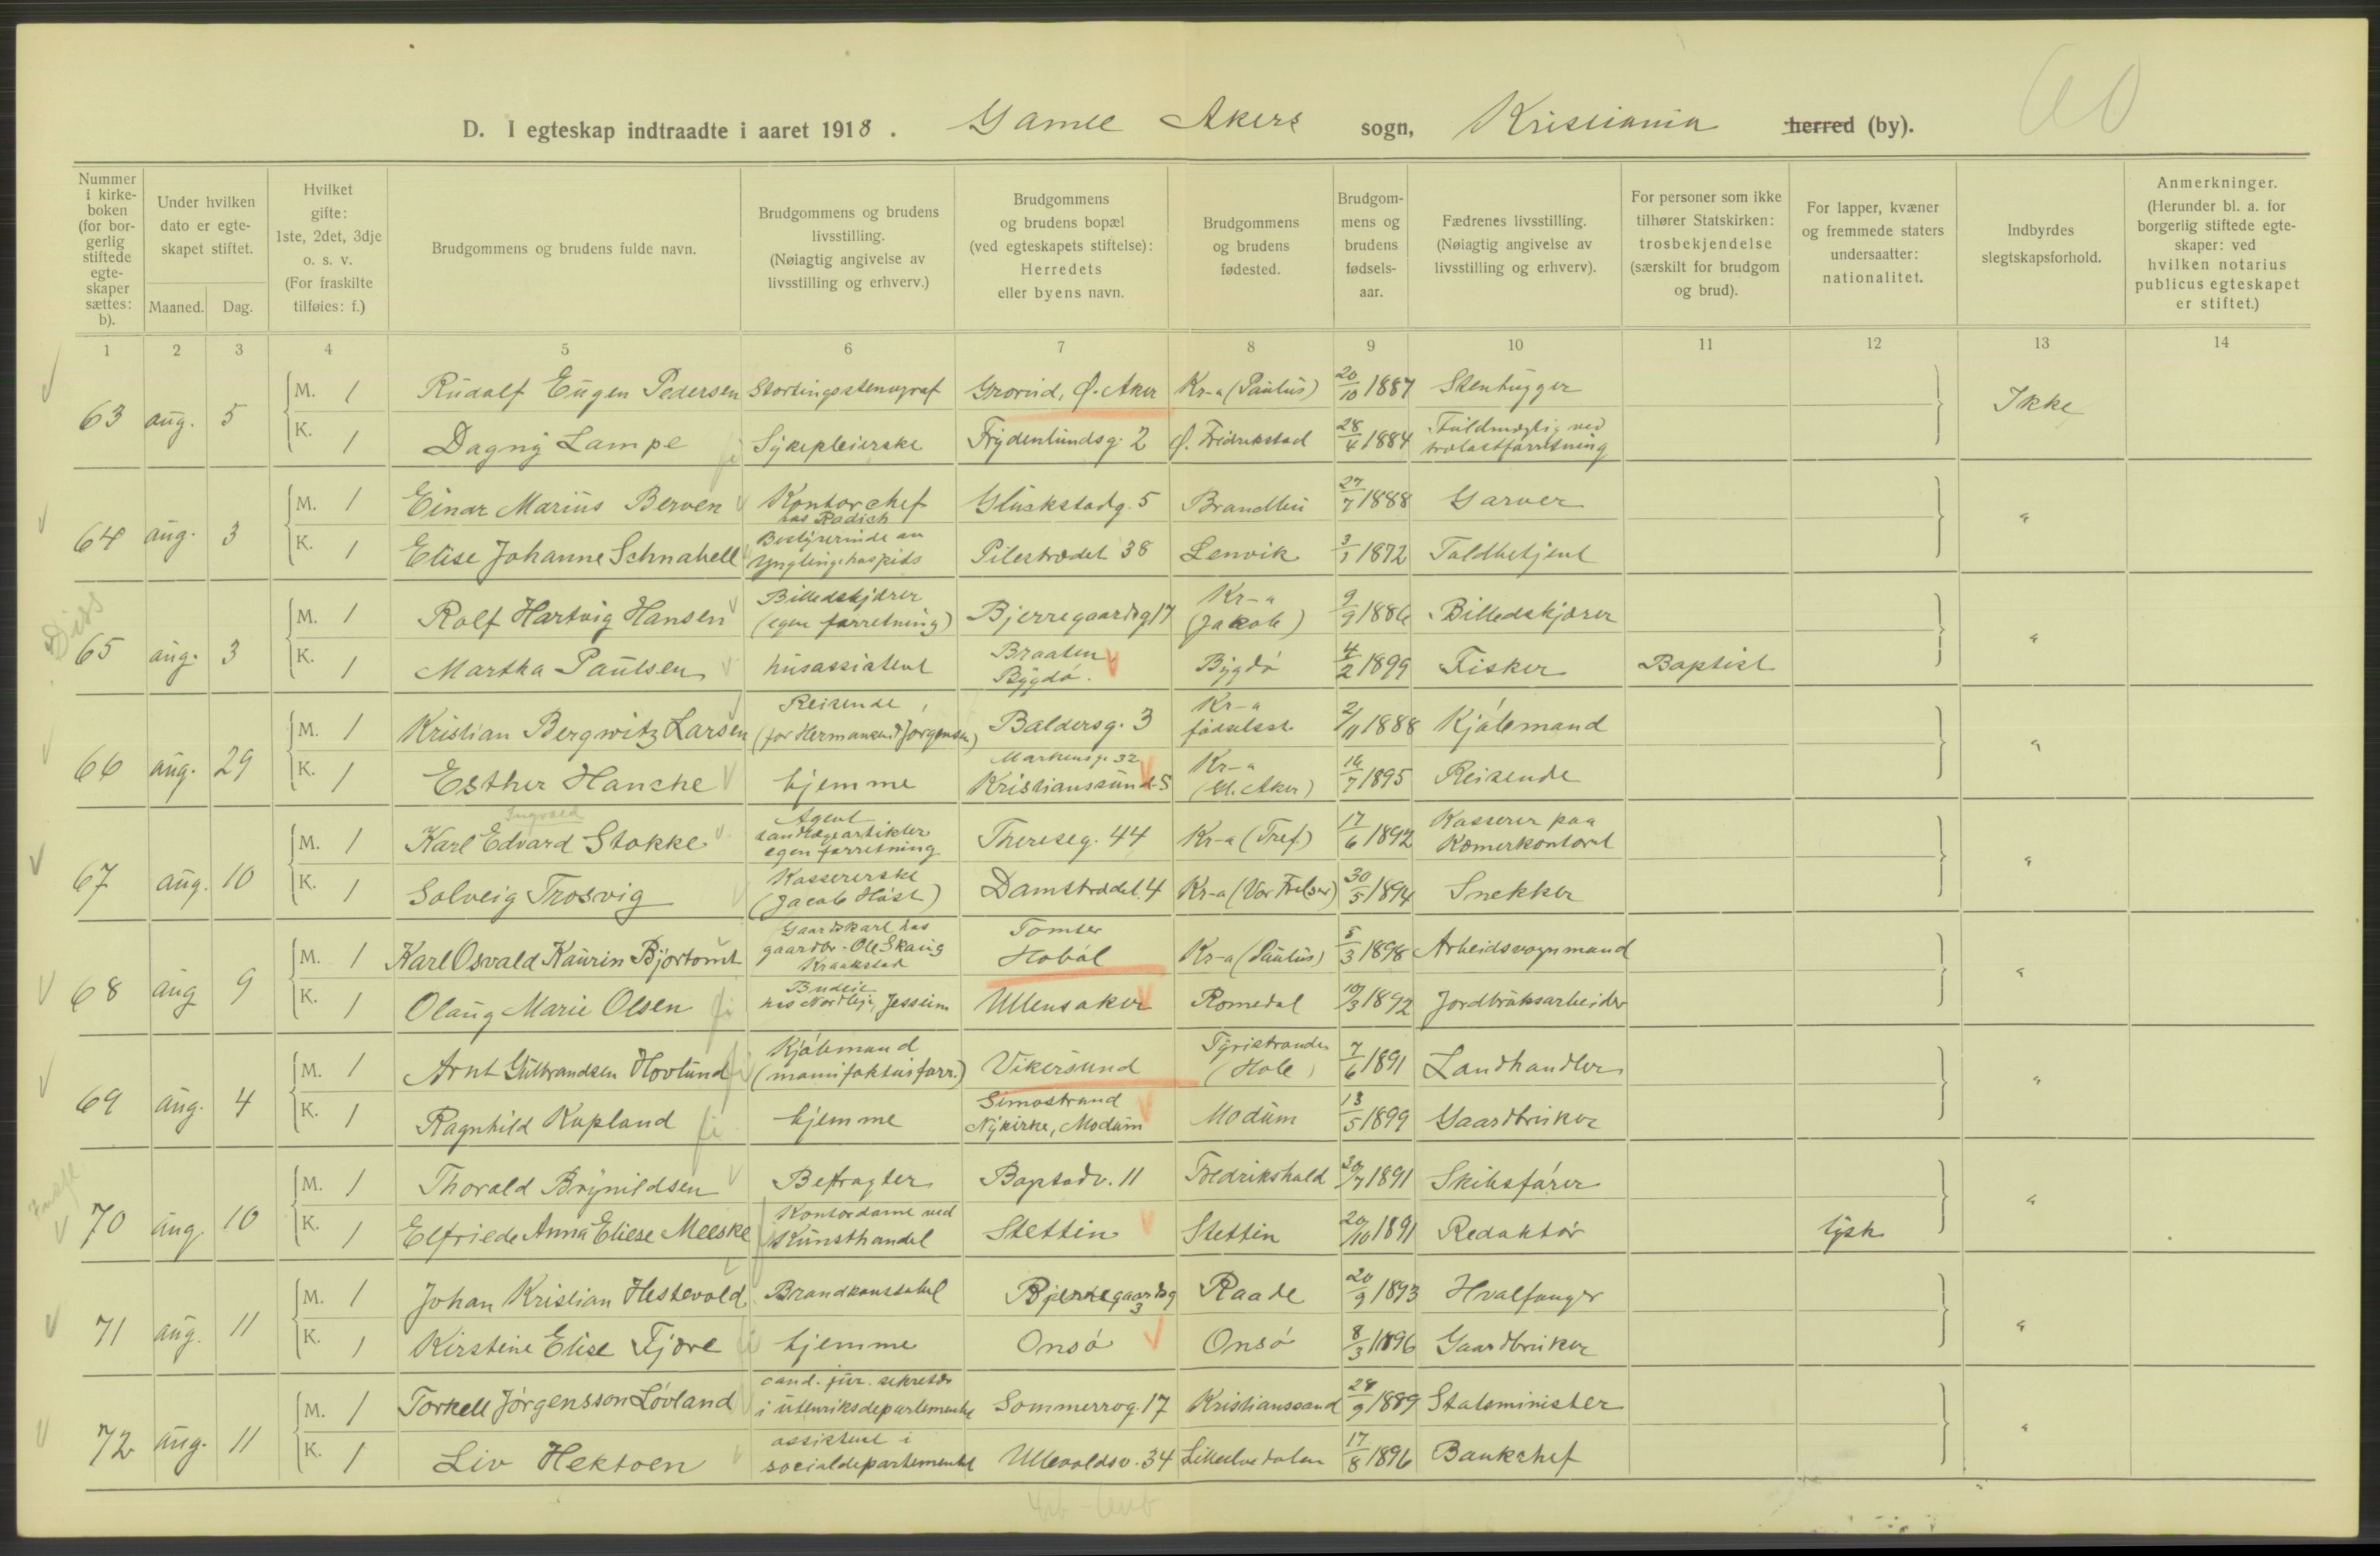 D. I egteskap indtraadte i aaret 1918. Gamle Akers sogn, Kristiania herred (by).
Nummer i kirke-boken (for bor-gerlig stiftede egte-skaper sættes: b).
Under hvilken dato er egte-skapet stiftet.
Maaned. Dag.
Hvilket gifte: 1ste, 2det, 3dje o. s. v. (For fraskilte tilføies: f.)
Brudgommens og brudens fulde navn.
Brudgommens og brudens livsstilling. (Nøiagtig angivelse av livsstilling og erhverv.)
Brudgommens og brudens bopæl (ved egteskapets stiftelse): Herredets eller byens navn.
Brudgommens og brudens fødested.
Brudgom-mens og brudens fødsels-aar.
Fædrenes livsstilling. (Nøiagtig angivelse av livsstilling og erhverv).
For personer som ikke tilhører Statskirken: trosbekjendelse (særskilt for brudgom og brud).
For lapper, kvæner og fremmede staters undersaatter: nationalitet.
Indbyrdes slegtskapsforhold.
Anmerkninger. (Herunder bl. a. for borgerlig stiftede egte-skaper: ved hvilken notarius publicus egteskapet er stiftet.)
1 2 3 4 5 6 7 8 9 10 11 12 13 14
63 aug. 5
M. 1 Rudolf Eugen Pedersen Stortingsstenograf Grorud, Ø. Aker Kr-a (Paulus) 20/10 1887 Stenhugger Ikke
K. 1 Dagny Lampe Sykepleierske Frydenlundsg. 2 Ø. Fredrikstad 28/4 1884 Fuldmægtig ved trælastforretning
64 aug. 3
M. 1 Einar Marius Berven Kontorchef hos Radich Gluckstadg. 5 Brandbu 27/7 1888 Garver "
K. 1 Elise Johanne Schnabell Bestyrerinde av Ynglingehospits Pilestrædet 38 Lenvik 3/1 1872 Toldbetjent
Diss
65 aug. 3
M. 1 Rolf Hartvig Hansen Billedskjærer (egen forretning) Bjerregaardsg 17 Kr-a (Jakob) 9/9 1886 Billedskjærer "
K. 1 Martha Paulsen husassistent Braaten Bygdø. Bygdø 4/2 1899 Fisker Baptist
66 aug. 29
M. 1 Kristian Bergwitz Larsen Reisende (for Hermansen & Jørgensen) Baldersg. 3 Kr-a fødselsst. 2/11 1888 Kjøbmand "
K. 1 Esther Hancke hjemme Markensg. 32 Kristianssund S Kr-a (Gl. Aker) 16/7 1895 Reisende
67 aug. 10
Ingvald
M. 1 Karl Edvard Stokke Agent tandlægeartikler egen forretning Thereseg. 44 Kr-a (Tref.) 17/6 1892 Kasserer paa Kemnerkontoret "
K. 1 Solveig Trosvig Kassererske (Jacob Høst) Damstrædet 4 Kr-a (Vor Frelser) 30/5 1894 Snekker
68 aug 9
M. 1 Karl Osvald Kaurin Bjortomt Gaardskarl hos gaardbr. Ole Skaug Kraakstad Tomter Hobøl Kr-a (Paulus) 5/3 1898 Arbeidsvognmand "
K. 1 Olaug Marie Olsen Budeie hos Nordbye, Jessheim Ullensaker Romedal 10/3 1892 Jordbruksarbeider
69 aug. 4
M. 1 Arnt Gulbrandsen Hovlund Kjøbmand (manufakturforr.) Vikersund Tyristranden (Hole) 7/6 1891 Landhandler "
K. 1 Ragnhild Kopland hjemme Simostrand Nykirke, Modum Modum 13/5 1899 Gaardbruker
70 aug 10
M. 1 Thorald Brynildsen Befragter Bogstadv. 11 Fredrikshald 30/7 1891 Skibsfører "
K. 1 Elfriede Anna Eliese Meeske Kontordame ved Kunsthandel Stettin Stettin 20/10 1891 Redaktør tysk
71 aug. 11
M. 1 Johan Kristian Hestevold Brandkonstabel Bjerregaardsg 3 Raade 20/9 1893 Hvalfanger "
K. 1 Kirstine Elise Fjære hjemme Onsø Onsø 8/3 1896 Gaardbruker
72 aug. 11
M. 1 Torkell Jørgensson Løvland cand. jur. sekretær i utenriksdepartementet Sommerrog. 17 Kristianssand 28/9 1889 Statsminister "
K. 1 Liv Hektoen assistent i socialdepartementet Ullevoldsv. 34 Lillelvedalen 17/8 1896 Bankchef